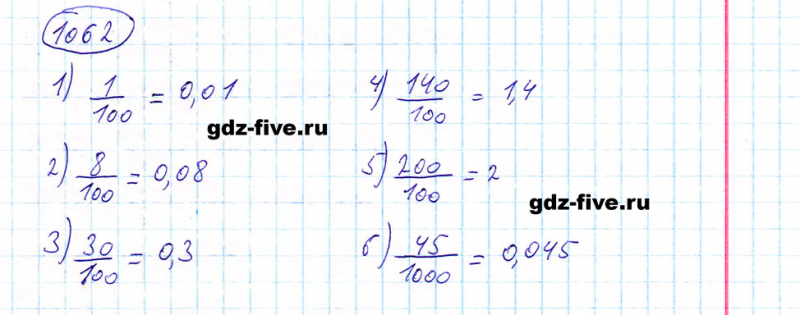 1062
1) 1/100 = 0,01
2) 8/100 = 0,08
3) 30/100 = 0,3
4) 140/100 = 1,4
5) 200/100 = 2
6) 45/1000 = 0,045
gdz-five.ru
gdz-five.ru